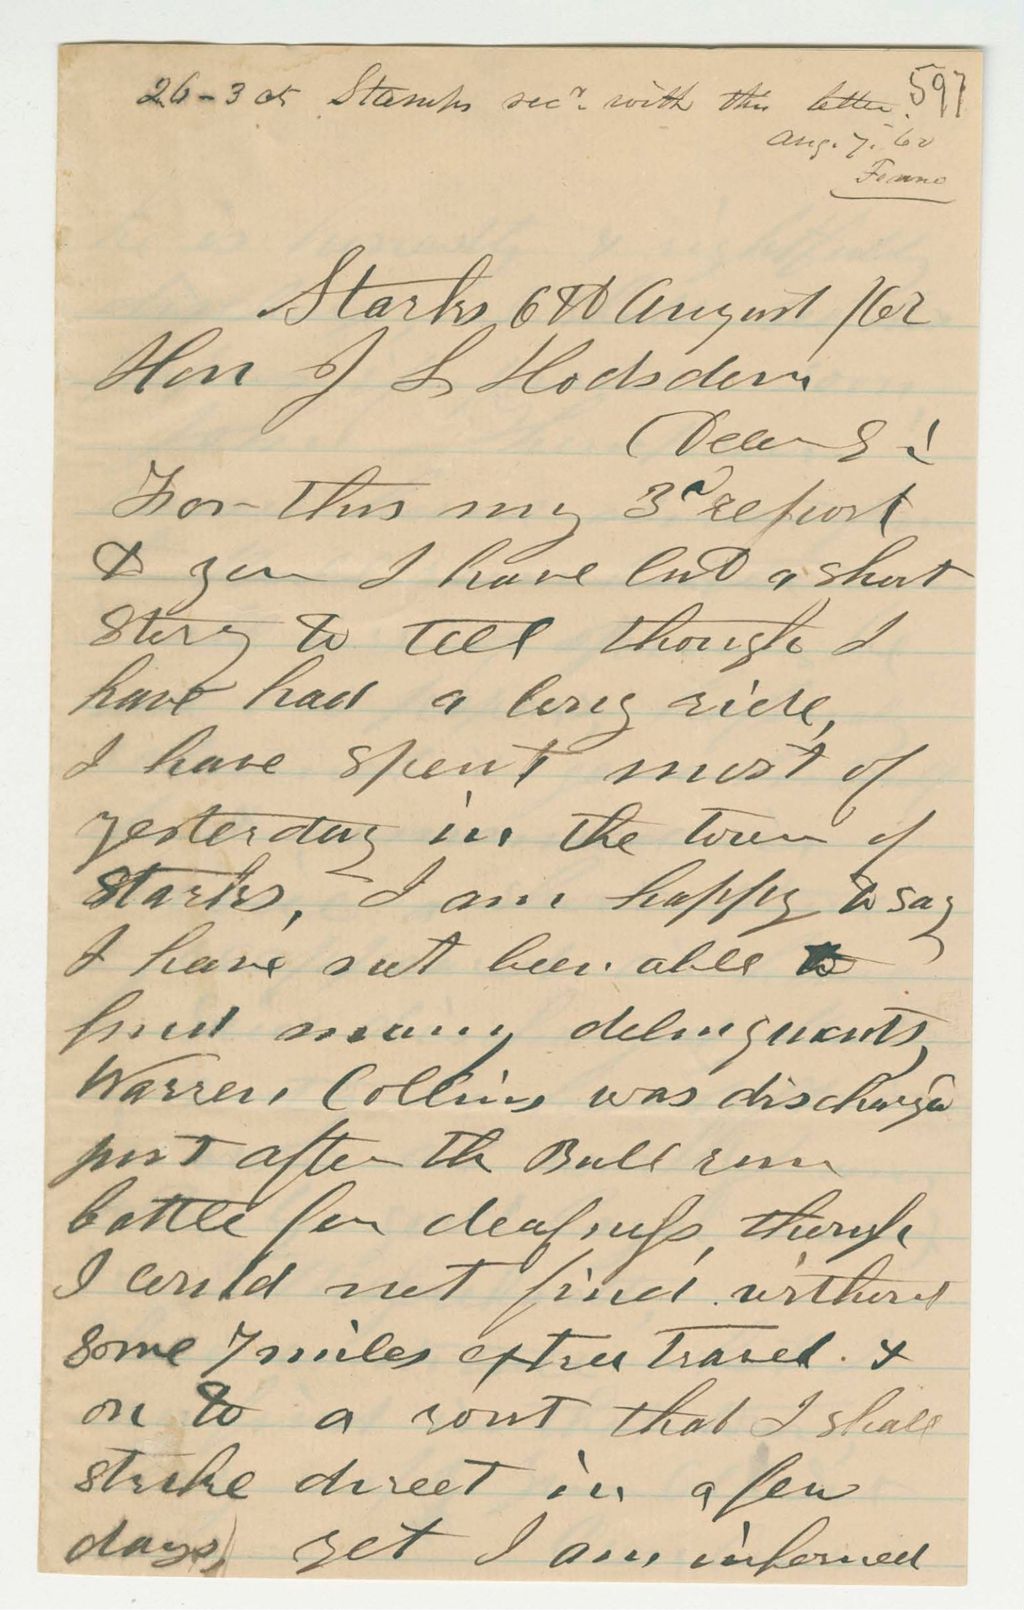 26 - 3 ct Stamps recd. with this letter. 597
Aug. 7. 62
Starks 6th August /62
Hon J L Hodsdon
Dear Sir
For this my 3d report
& you I have but a short
story to tell though I
have had a long ride,
I have spent most of
yesterday in the town of
Starks, I am happy to say
I have not been able to
find many delinquants,
Warren Collins was discharged
just after the Bull run
battle for deafness, though
I could not find without
some 7 miles extra travel. &
on to a rout that I shall
strike direct in a few
days) yet I am informed